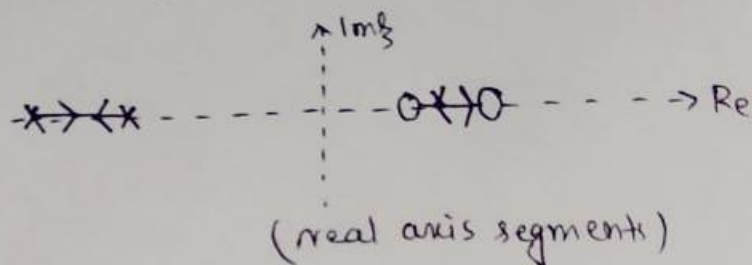 Img
Re
(real axis segments)